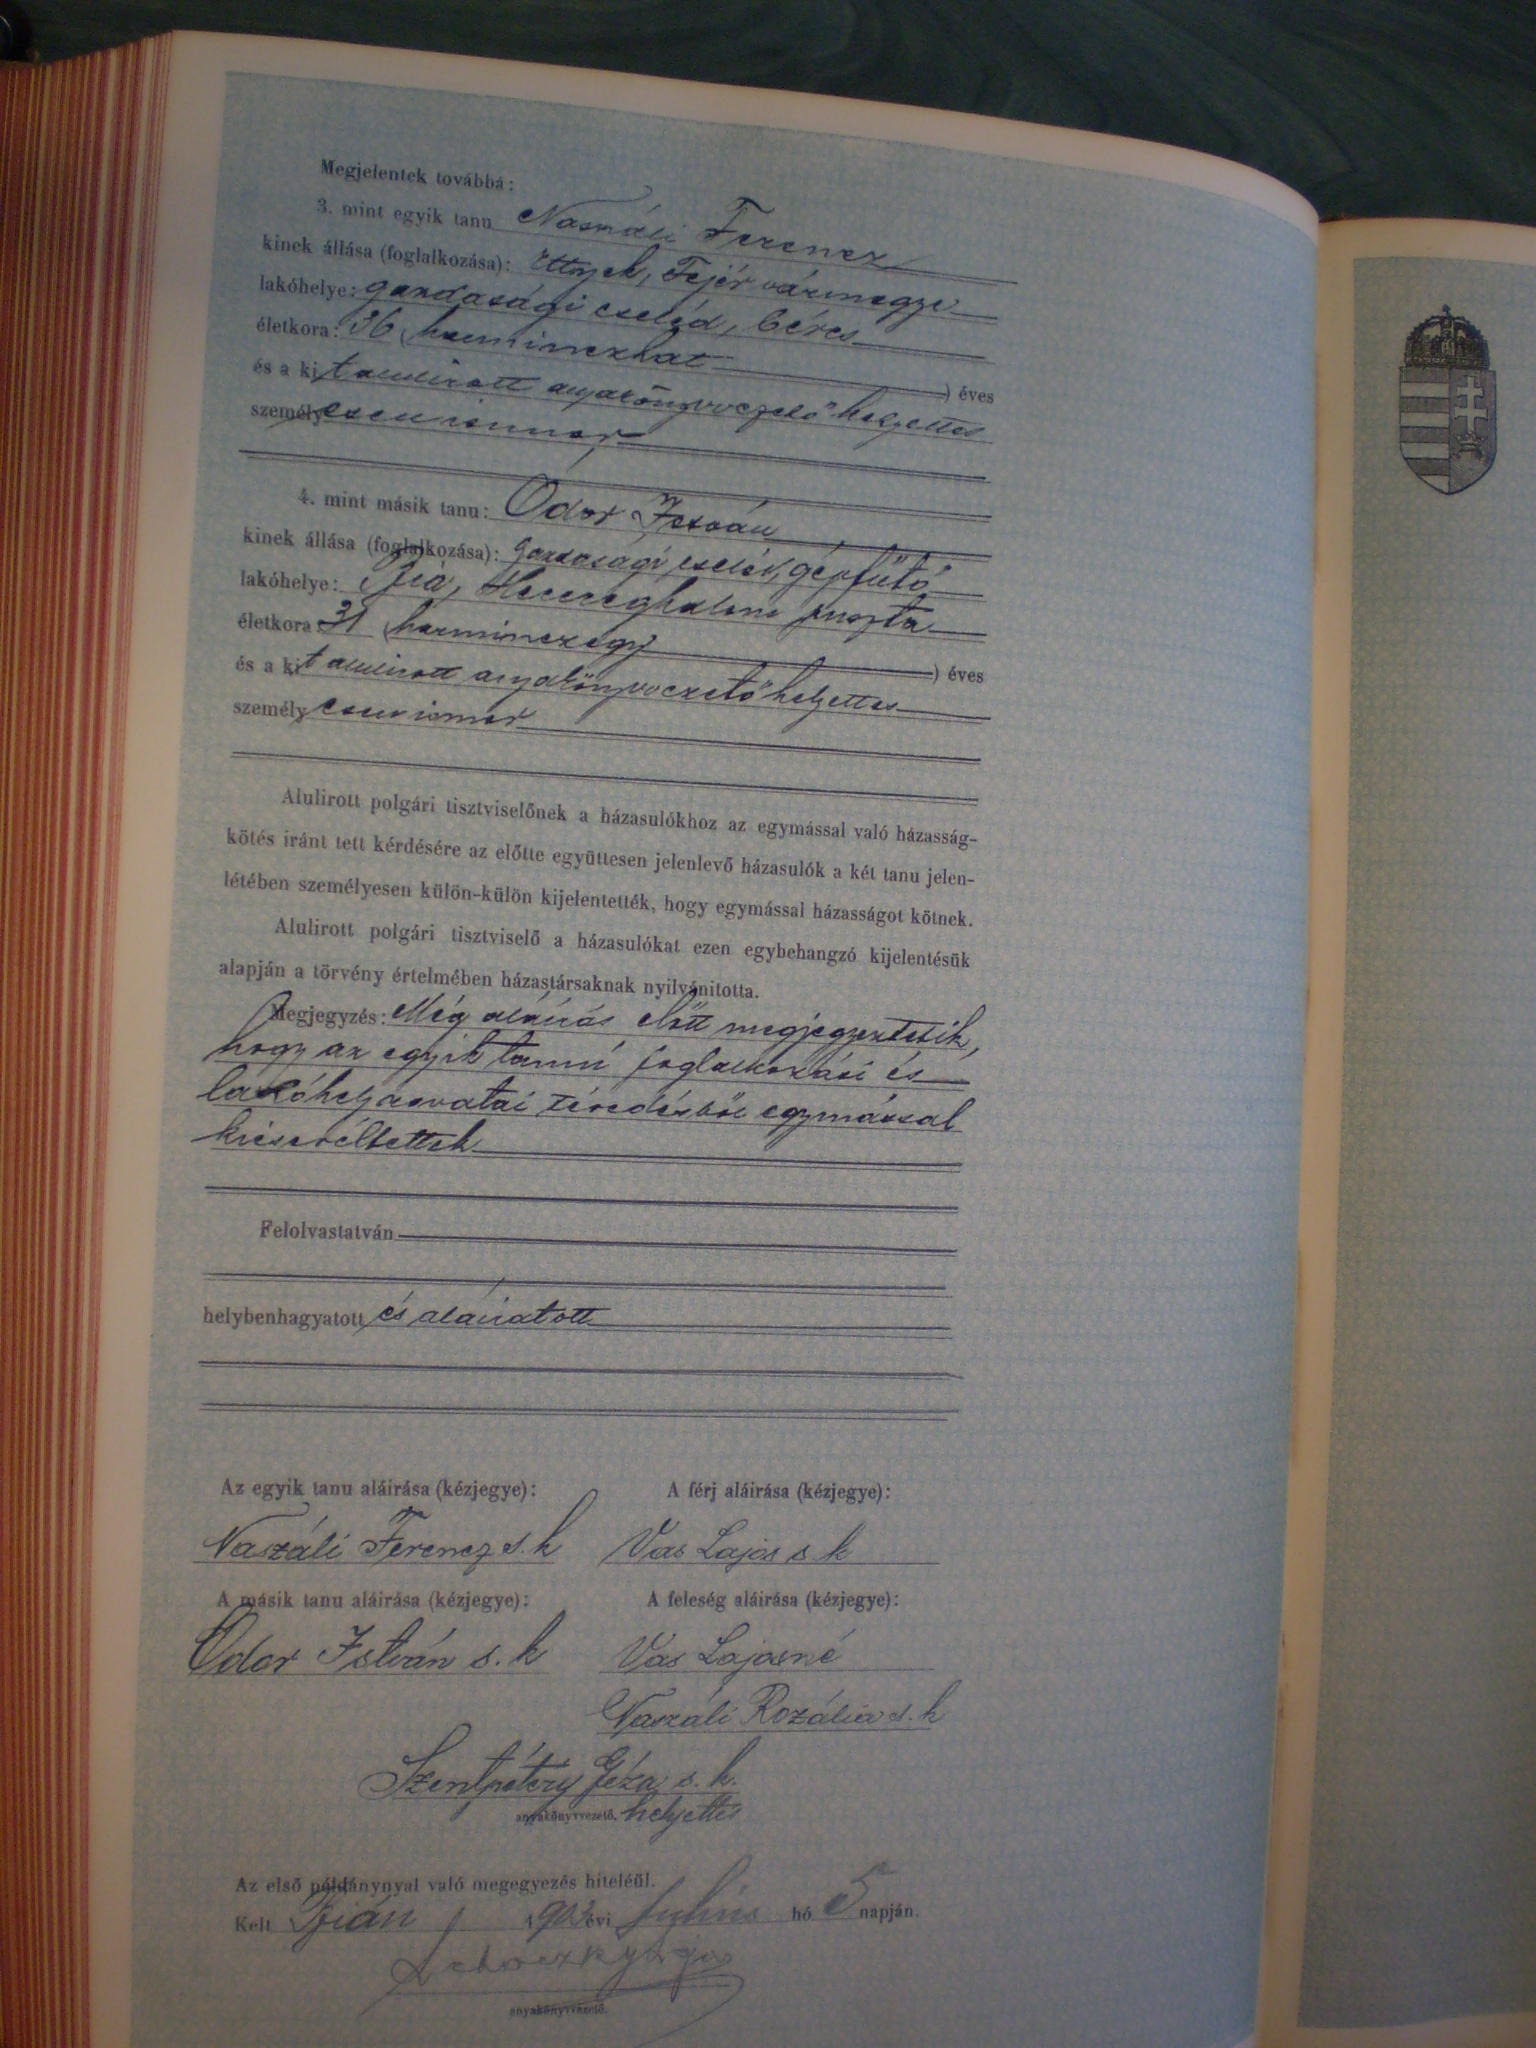 Megjelentek továbbá:
3. mint egyik tanu Naszáli Ferencz
kinek állása (foglalkozása): Ettyek, Fejér vármegye
lakóhelye: gazdasági cseléd, béres
életkora: 36 (harminczhat ) éves
és a kit alulirott anyakönyvvezető helyettes
személyesen ismer
4. mint másik tanu: Ódor István
kinek állása (foglalkozása): gazdasági cseléd, gépfűtő
lakóhelye: Bia, Herczeghalom puszta
életkora: 31 (harminczegy ) éves
és a kit alulirott anyakönyvvezető helyettes
személyesen ismer
Alulirott polgári tisztviselőnek a házasulókhoz az egymással való házasság-
kötés iránt tett kérdésére az előtte együttesen jelenlevő házasulók a két tanu jelen-
létében személyesen külön-külön kijelentették, hogy egymással házasságot kötnek.
Alulirott polgári tisztviselő a házasulókat ezen egybehangzó kijelentésük
alapján a törvény értelmében házastársaknak nyilvánitotta.
Megjegyzés: Még aláírás előtt megjegyeztetik,
hogy az egyik tanú foglalkozási és
lakóhelyrovatai tévedésből egymással
kicseréltettek
Felolvastatván
helybenhagyatott és aláíratott
Az egyik tanu aláirása (kézjegye): A férj aláirása (kézjegye):
Naszáli Ferencz s. k Vas Lajos s. k
A másik tanu aláirása (kézjegye): A feleség aláirása (kézjegye):
Ódor István s. k Vas Lajosné
Naszáli Rozália s. k
Szentpétery Géza s. k.
anyakönyvvezető. helyettes
Az első példánynyal való megegyezés hiteléül.
Kelt Bián, évi Julius hó 5 napján.
anyakönyvvezető.